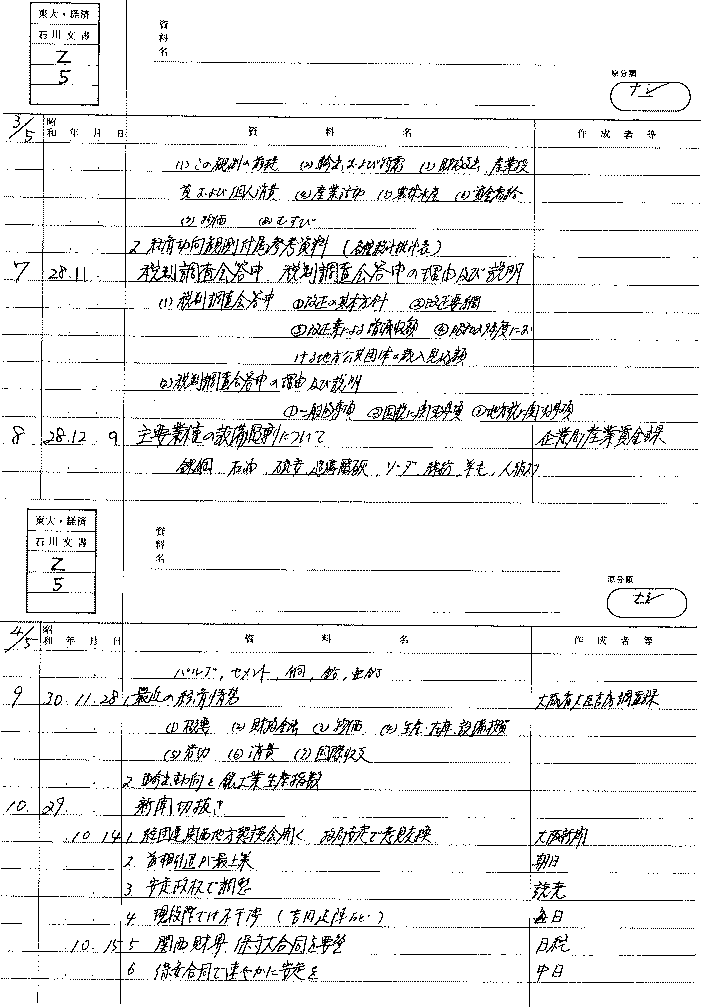 東大・経済
石川文書
Z
5
資料名
原分類
ナシ
3/5
昭和 年 月 日 資料名 作成者等
(1) この観測の前提 (2) 輸出および特需 (3) 財政支出、産業投
資および個人消費 (4) 産業活動 (5) 農林水産 (6) 資金需給
(7) 物価 (8) むすび
2 経済動向観測付属参考資料 (各種統計推計表)
7 28.11 税制調査会答申 税制調査会答申の理由及び説明
(1) 税制調査会答申 ①改正の基本方針 ②改正要綱
③改正案による増減収額 ④昭和 年度にお
ける地方公共団体の歳入見込額
(2) 税制調査会答申の理由及び説明
①一般的事項 ②国税に関する事項 ③地方税に関する事項
8 28.12 9 主要業種の設備規制について 企業局産業資金課
鉄鋼 石油 硫安 過燐酸 ソーダ 綿紡 羊毛 人絹スフ
東大・経済
石川文書
Z
5
資料名
原分類
ナシ
4/5
昭和 年 月 日 資料名 作成者等
パルプ、セメント、銅、鉛、亜鉛
9 30.11.28 1 最近の経済情勢 大蔵省大臣官房調査課
(1) 概要 (2) 財政金融 (3) 物価 (4) 生産・在庫・設備投資
(5) 労働 (6) 消費 (7) 国際収支
2 輸出動向と鉱工業生産指数
10. 29. 新聞切抜き
10 14 1 経団連関西地方懇談会開く 政局安定で意見交換 大阪新聞
2 首相引退が最上策 朝日
3 安定政权で調整 読売
4 現段階では不干渉 (吉田退陣 ) 毎日
10 15 5 関西財界 保守大合同を要望 日経
6 保守合同で速やかに安定を 中日